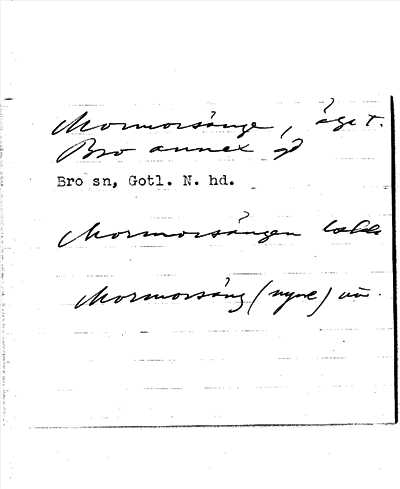 Mormorsänge, äga t.
Bro annex
Bro sn, Gotl. N. hd.
Mormorsängen
Mormorsäng (nyare)